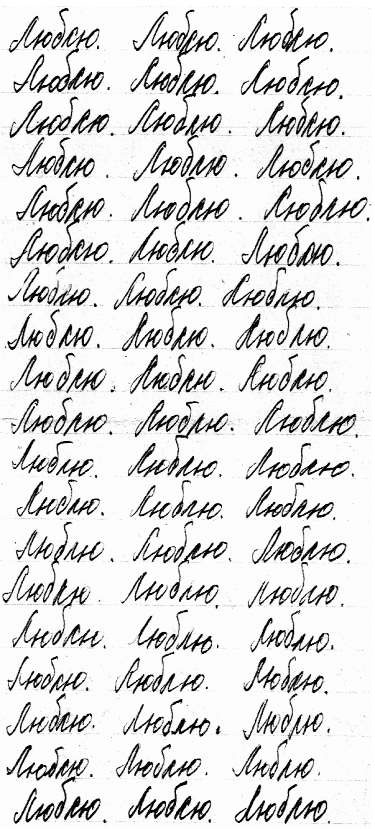 Люблю. Люблю. Люблю.
Люблю. Люблю. Люблю.
Люблю. Люблю. Люблю.
Люблю. Люблю. Люблю.
Люблю. Люблю. Люблю.
Люблю. Люблю. Люблю.
Люблю. Люблю. Люблю.
Люблю. Люблю. Люблю.
Люблю. Люблю. Люблю.
Люблю. Люблю. Люблю.
Люблю. Люблю. Люблю.
Люблю. Люблю. Люблю.
Люблю. Люблю. Люблю.
Люблю. Люблю. Люблю.
Люблю. Люблю. Люблю.
Люблю. Люблю. Люблю.
Люблю. Люблю. Люблю.
Люблю. Люблю. Люблю.
Люблю. Люблю. Люблю.